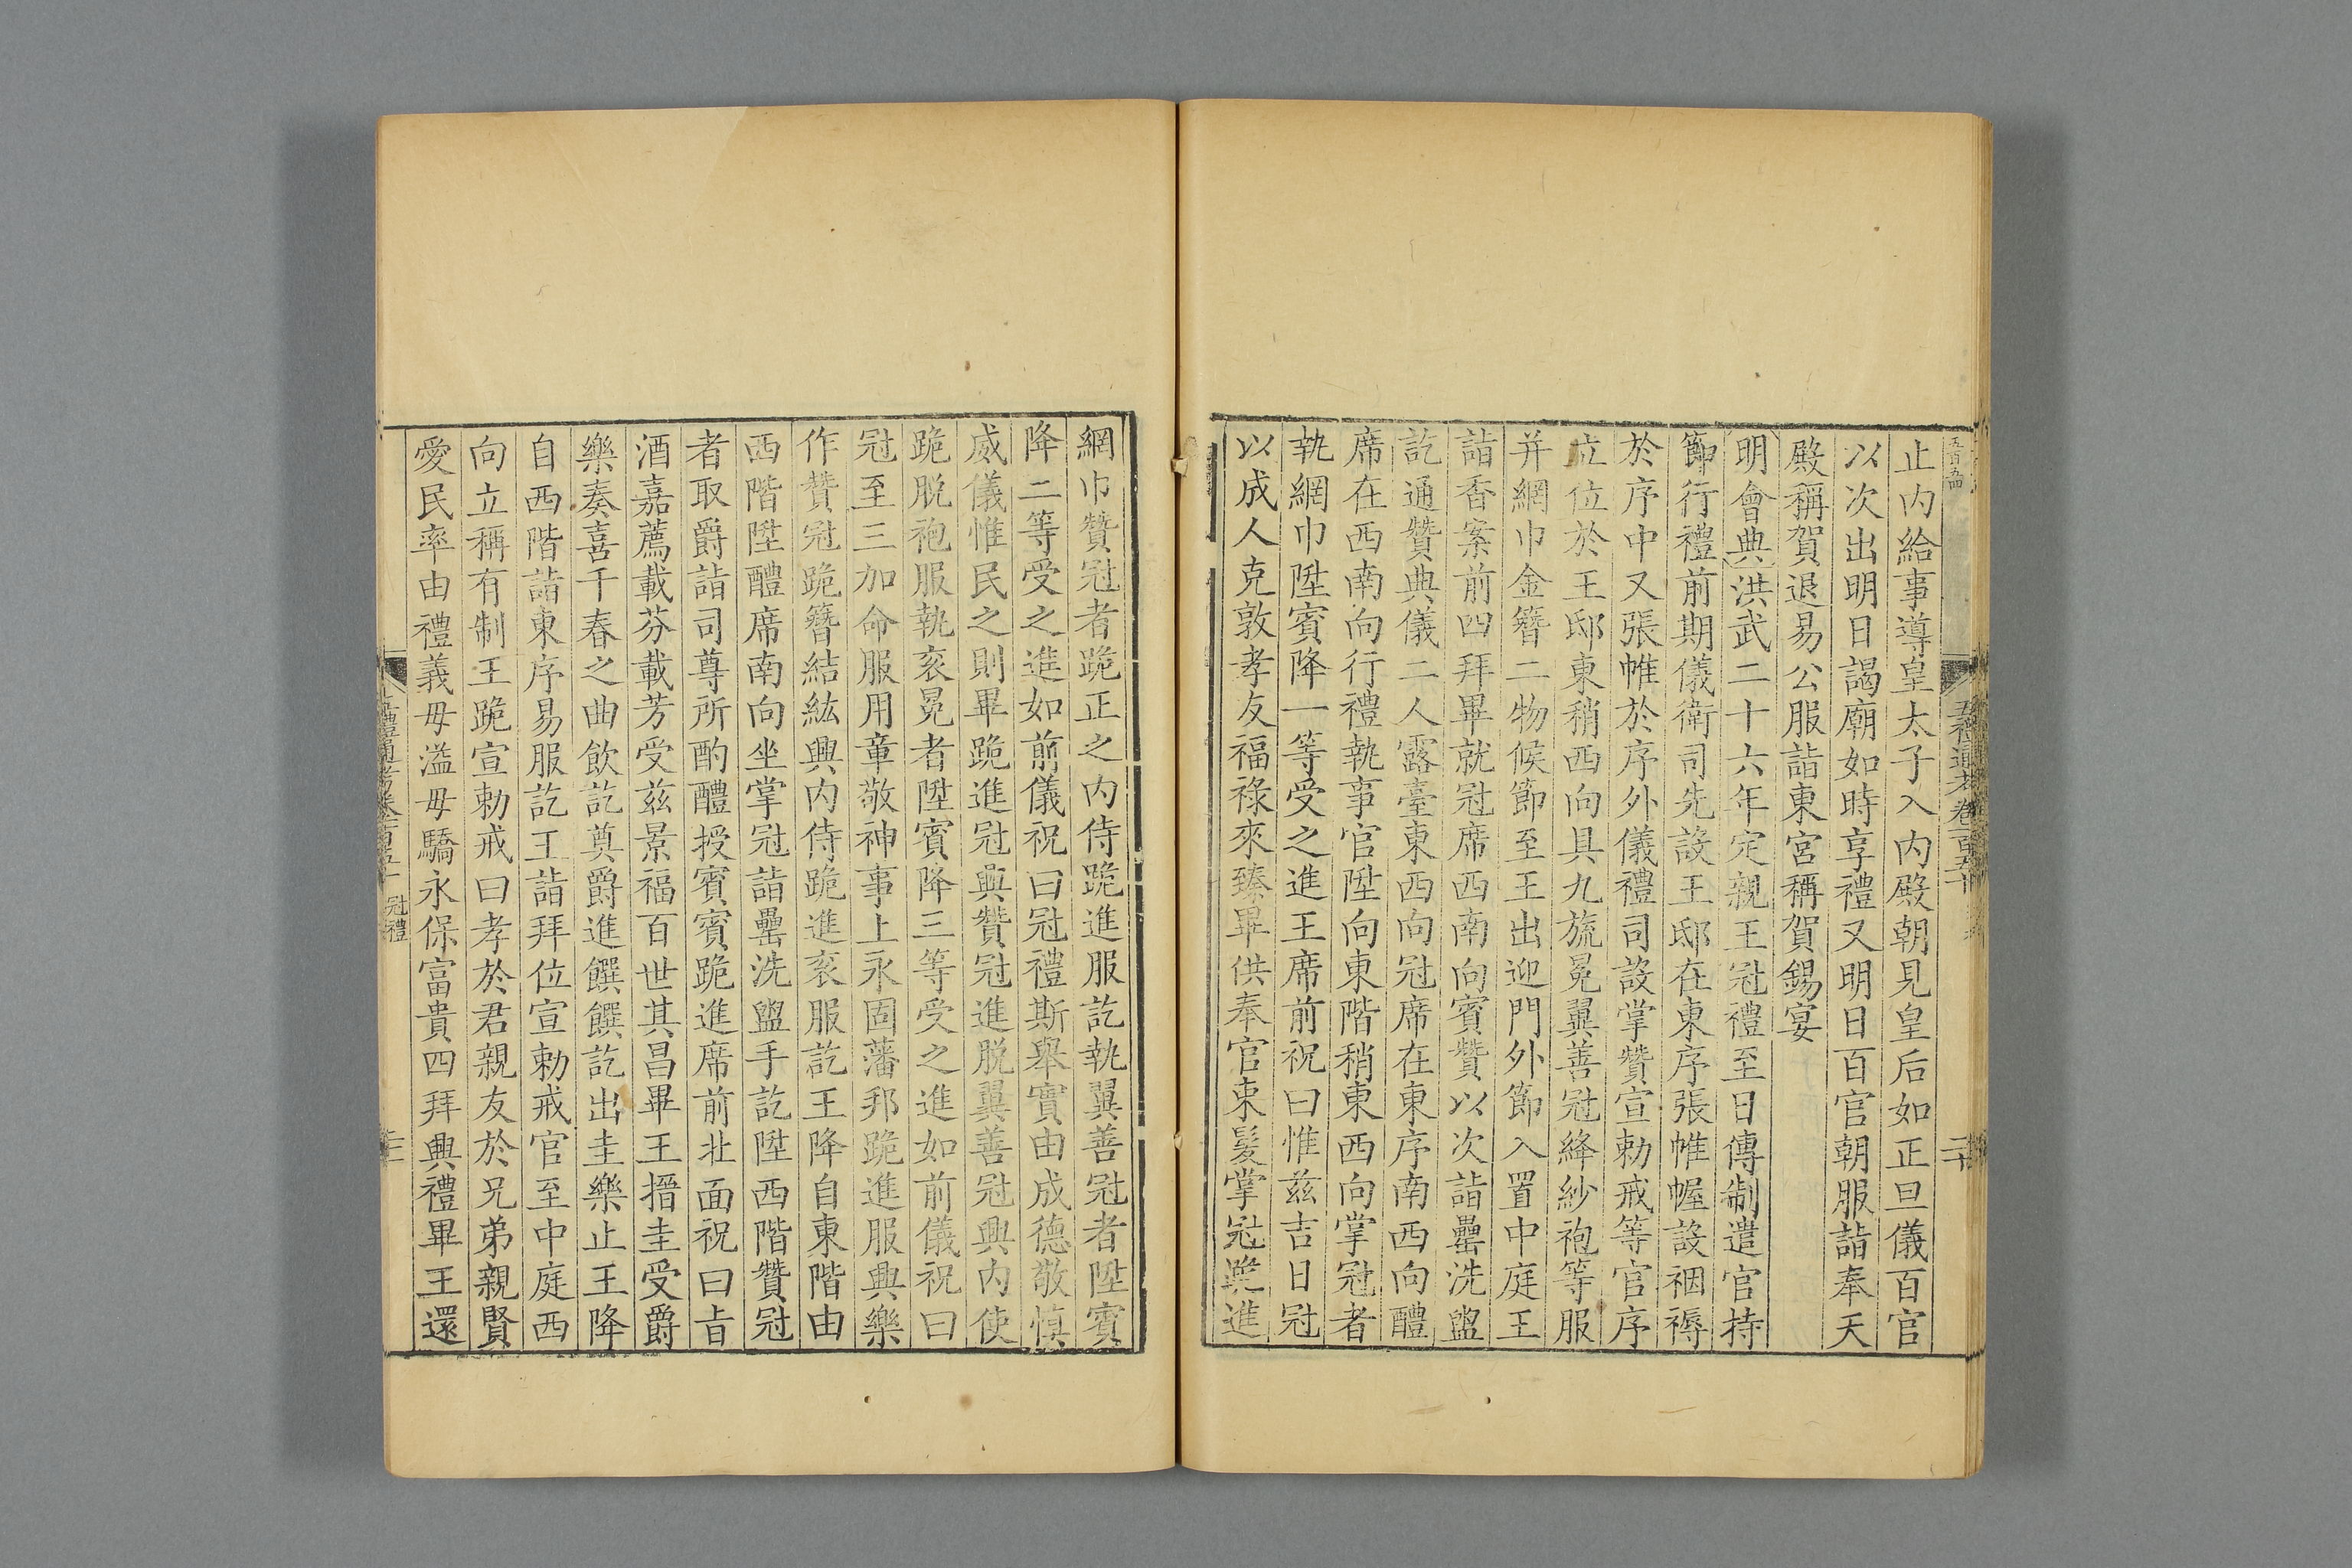 五百五四
五禮通考卷一百五十
二十
止内給事導皇太子入内殿朝見皇后如正旦儀百官
以次出明日謁廟如時享禮又明日百官朝服詣奉天
殿稱賀退易公服詣東宮稱賀錫宴
明會典洪武二十六年定親王冠禮至日傳制遣官持
節行禮前期儀衛司先設王邸在東序張帷幄設裀褥
於序中又張帷於序外儀禮司設掌贊宣勅戒等官序
立位於王邸東稍西向具九旒冕翼善冠絳紗袍等服
并網巾金簪二物候節至王出迎門外節入置中庭王
詣香案前四拜畢就冠席西南向賓贊以次詣罍洗盥
訖通贊典儀二人露臺東西向冠席在東序南西向醴
席在西南向行禮執事官陞向東階稍東西向掌冠者
執網巾陞賓降一等受之進王席前祝曰惟兹吉日冠
以成人克敦孝友福祿來臻畢供奉官束髮掌冠跪進
網巾贊冠者跪正之内侍跪進服訖執翼善冠者陞賓
降二等受之進如前儀祝曰冠禮斯舉實由成德敬慎
威儀惟民之則畢跪進冠興贊冠進脱翼善冠興内使
跪脱袍服執衮冕者陞賓降三等受之進如前儀祝曰
冠至三加命服用章敬神事上永固藩邦跪進服興樂
作贊冠跪簪結紘興内侍跪進衮服訖王降自東階由
西階陞醴席南向坐掌冠詣罍洗盥手訖陞西階贊冠
者取爵詣司尊所酌醴授賓賓跪進席前北面祝曰旨
酒嘉薦載芬載芳受兹景福百世其昌畢王搢圭受爵
樂奏喜千春之曲飲訖奠爵進饌饌訖出圭樂止王降
自西階詣東序易服訖王詣拜位宣勅戒官至中庭西
向立稱有制王跪宣勅戒曰孝於君親友於兄弟親賢
愛民率由禮義毋溢毋驕永保富貴四拜興禮畢王還
五禮通考卷一百五十 冠禮